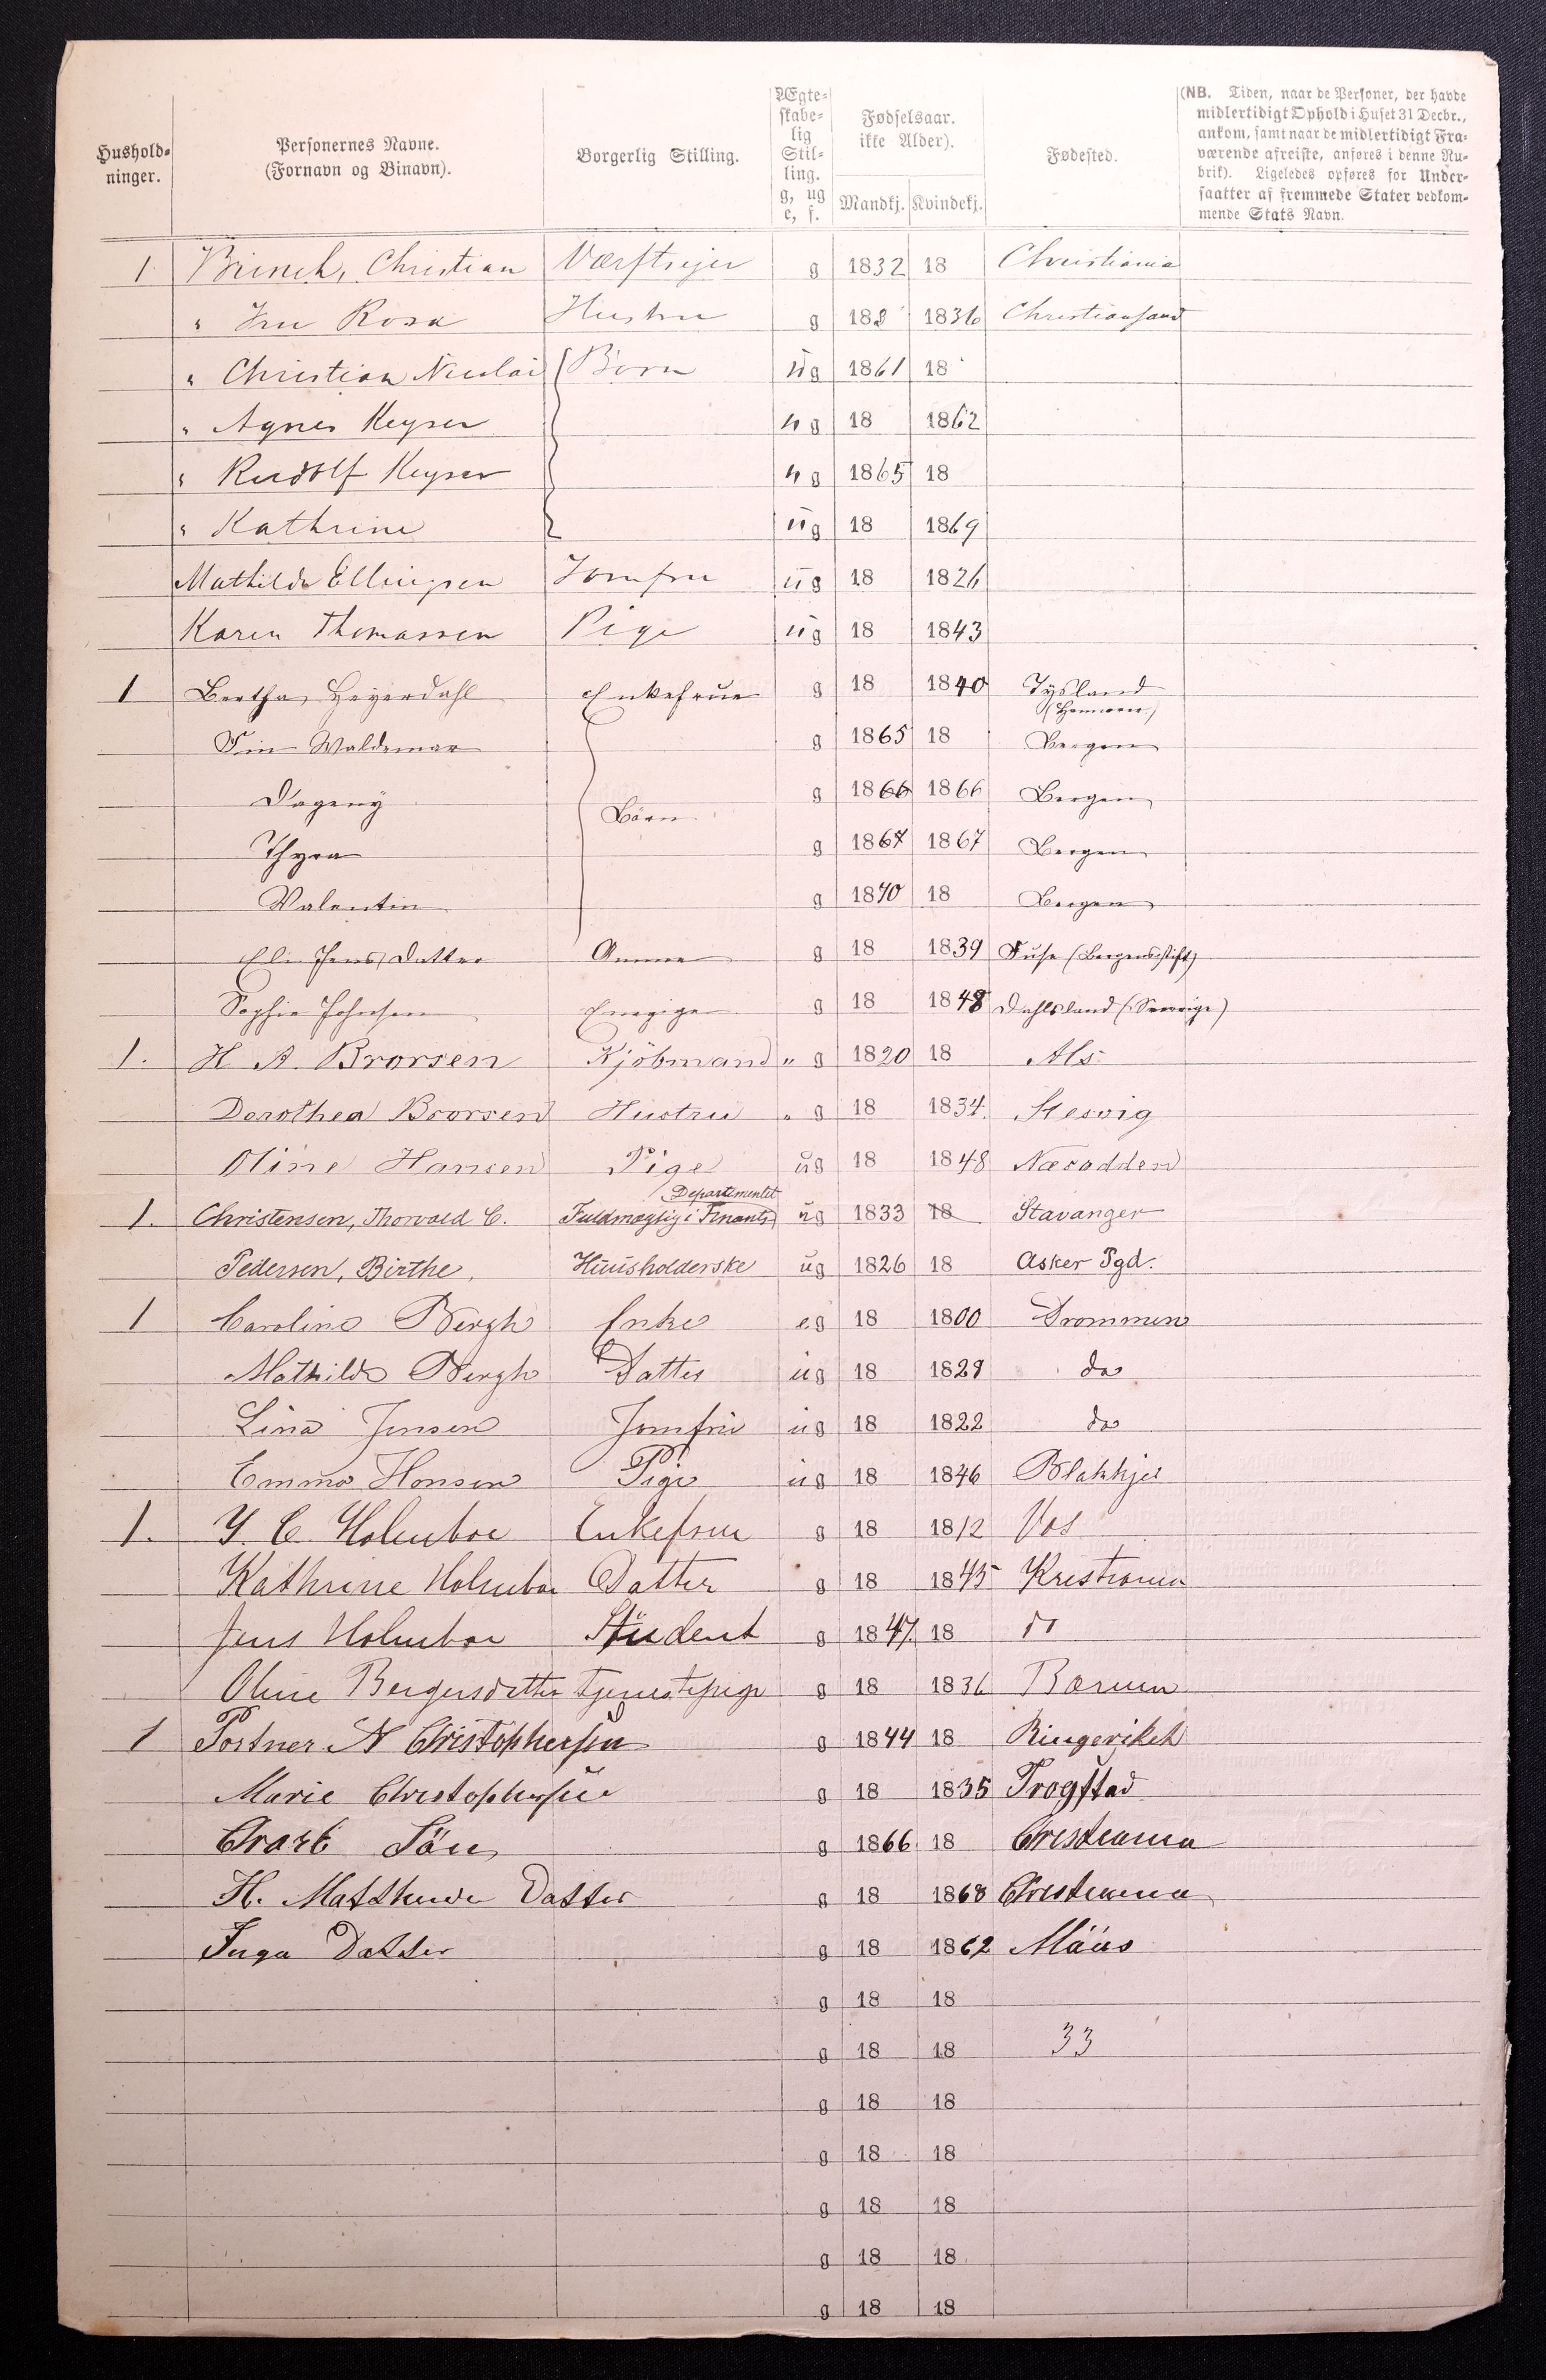 Hushold-
ninger.
Personernes Navne.
(Fornavn og Binavn).
Borgerlig Stilling.
Ægte-
skabe-
lig
Stil-
ling.
g, ug
e, f.
Fødselsaar.
ikke Alder).
Mandkj. Kvindekj.
Fødested.
(NB. Tiden, naar de Personer, der havde
midlertidigt Ophold i Huset 31 Decbr.,
ankom, samt naar de midlertidigt Fra-
værende afreiste, anføres i denne Ru-
brik). Ligeledes opføres for Under-
saatter af fremmede Stater vedkom-
mende Stats Navn.
1 Brinch, Christian Værftseier g 1832 18 Christiania
" Fru Rosa Hustru g 18 1836 Christiansand
" Christian Nicolai Børn ug 1861 18
" Agnes Keyser ug 18 1862
" Rudolf Keyser ug 1865 18
" Kathrine ug 18 1869
Mathilde Ellingsen Jomfru ug 18 1826
Karen Thomassen Pige ug 18 1843
1 Bertha Heyerdahl Enkefrue g 18 1840 Tysland
(Hannover)
Fin Waldemar g 1865 18 Bergen
Dageny Börn g 1866 1866 Bergen
Thyra g 1867 1867 Bergen
Valentin g 1870 18 Bergen
Eli Jens Datter Amme g 18 1839 Fuse (Bergensstift)
Sophie Johnsen Enepige g 18 1848 Dahlsland (Sverrige)
1. H. A. Brorsen Kjöbmand " g 1820 18 Als
Dorothea Brorsen Hustru " g 18 1834. Slesvig
Oline Hansen Pige ug 18 1848 Næsodden
Departementet
1. Christensen, Thorvald C. Fuldmægtig i Finants ug 1833 18 Stavanger
Pedersen, Birthe, Huusholderske ug 1826 18 Asker Pgd.
1 Caroline Bergh Enke eg 18 1800 Drommen
Mathilde Bergh Datter ug 18 1829 do
Lina Jensen Jomfru ug 18 1822 do
Emma Hansen Pige ug 18 1846 Blakkjer
1. Y. C. Holmboe Enkefrue g 18 1812 Vos
Kathrine Holmboe Datter g 18 1845 Kristiania
Jens Holmboe Student g 1847. 18 do
Oline Bergersdatter Tjenestepige g 18 1836 Bærum
1 Portner N Christophersen g 1844 18 Ringeriket
Marie Christophersen g 18 1835 Trogstad
Søn g 1866 18 Christiania
H. Datter g 18 1868 Christiania
Inga Datter g 18 1862
g 18 18
g 18 18 33
g 18 18
g 18 18
g 18 18
g 18 18
g 18 18